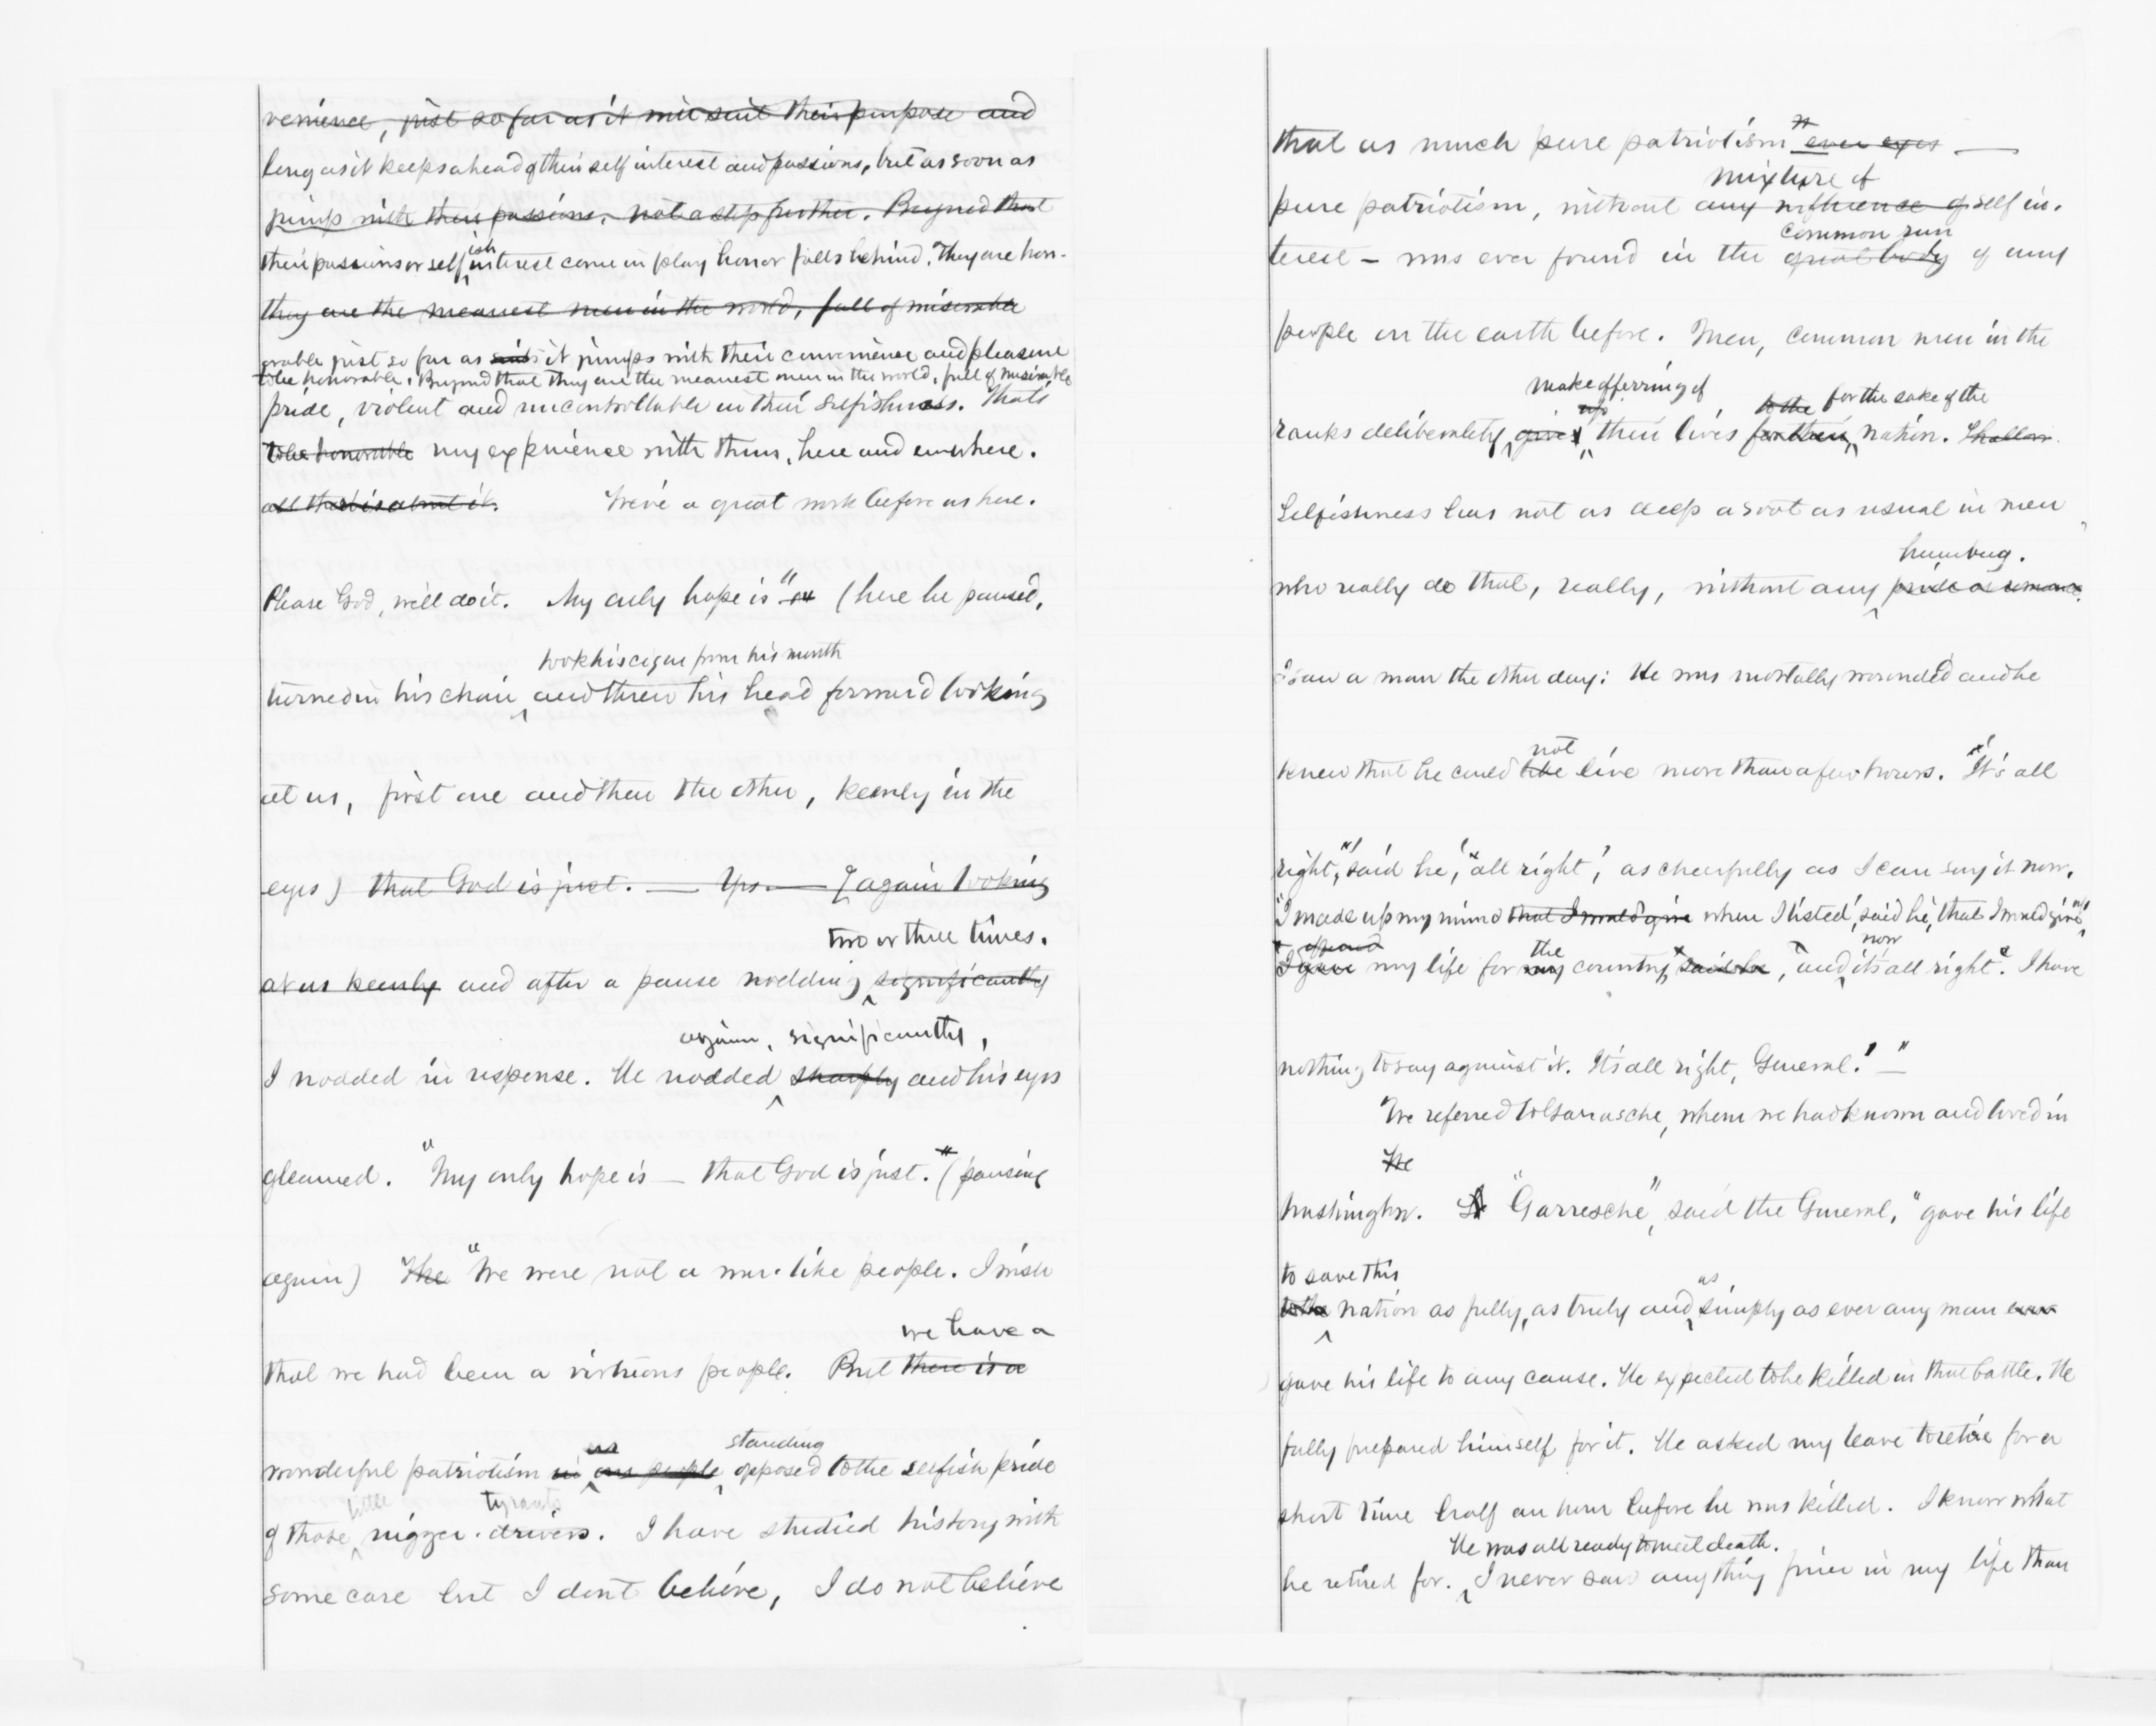 venience, just so far as it will suit their purpose and
long as it keeps ahead of their self interest and passions, but as soon as
jumps with their passions, not a step further. Beyond that
their passions or self ish interest come in play honor falls behind. They are hon-
they are the meanest men in the world, full of miserable
orable just so far as suits it jumps with their convenience and pleasure
to be honorable. Beyond that they are the meanest men in the world, full of miserable
pride, violent and uncontrollable in their selfishness. That's
to be honorable my experience with them, here and everywhere.
all that is about it. We've a great work before us here.
Please God, we'll do it. My only hope is" (here he paused,
took his cigar from his mouth
turned in his chair and threw his head forward looking
at us, first one and then the other, keenly in the
eyes) that God is just. — Yes — [again looking
two or three times.
at us keenly and after a pause nodding significantly
again, significantly,
I nodded in response. He nodded sharply and his eyes
gleamed. "My only hope is — that God is just." (pausing
again) The "We were not a war-like people. I wish
we have a
that we had been a virtuous people. But there is a
as standing
wonderful patriotism in our people opposed to the selfish pride
little tyrants
of those nigger-drivers. I have studied history with
some care but I don't believe, I do not believe
that as much pure patriotism ever exis —
mixture of
pure patriotism, without any influence of self in-
common run
terest — was ever found in the great body of any
people on the earth before. Men, common men in the
make offering of to the for the sake of the
up
ranks deliberately give their lives for their nation. Shallow
Selfishness has not as deep a root as usual in men
humbug.
who really do that, really, without any pride or romance.
I saw a man the other day: He was mortally wounded and he
not
knew that he could live live more than a few hours. "'It's all
right,' said he, 'all right', as cheerfully as I can say it now.
'I made up my mind that I would give when I 'listed', said he, 'that I would give
offered the now
I gave my life for my country, said he, and it's all right. I have
nothing to say against it. It's all right, General.' — "
We referred to Garrasche, whom we had known and loved in
He
Washington. "Garresche", said the General, "gave his life
to save this as
to the nation as fully, as truly and simply as ever any man ever
gave his life to any cause. He expected to be killed in that battle. He
fully prepared himself for it. He asked my leave to retire for a
short time half an hour before he was killed. I know what
He was all ready to meet death.
he retired for. I never saw anything finer in my life than